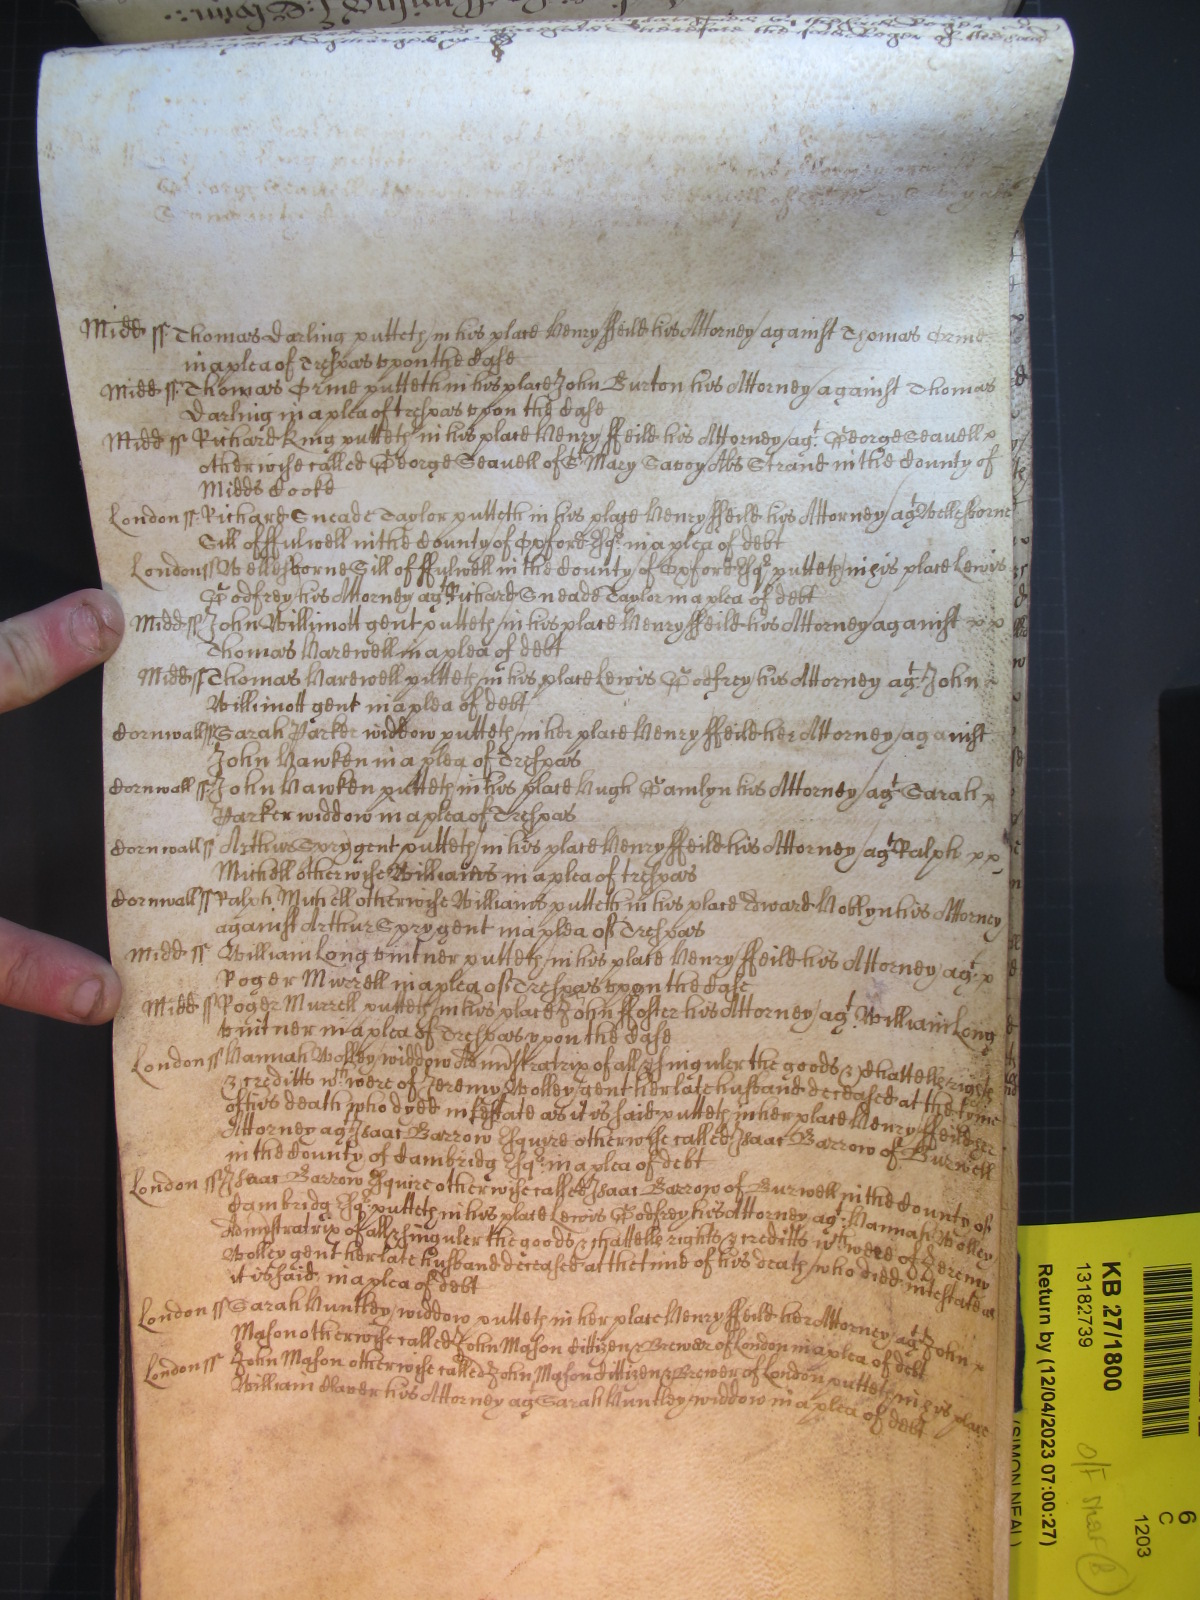 Midd ss Thomas Darling putteth in his place Henry ffeild his Attorney against Thomas Orme
in a plea of Trespas vpon the Case
Midd ss Thomas Orme putteth in his place John Burton his Attorney against Thomas
Darling in a plea of trespas vpon the Case
Midd ss Richard King putteth in his place Henry ffeild his Attorney agt George Seavell x
otherwise called George Seavell of St Mary Savoy Als Strand in the County of
Midds Cooke
London ss Richard Sneade Taylor putteth in his place Henry ffeild his Attorney agt Wellesborne
Sill of ffulwell in the County of Oxford Esqr in a plea of debt
London ss Wellesborne Sill of ffulwell in the County of Oxford Esqr putteth in his place Lewis
Godfrey his Attorney agt Richard Sneade Taylor in a plea of debt
Midd ss John Willimott gent putteth in his place Henry ffeild his Attorney against x x
Thomas Harewell in a plea of debt
Midd ss Thomas Harewell putteth in his place Lewis Godfrey his Attorney agt John
Willimott gent in a plea of debt
Cornwall ss Sarah Parker widdow putteth in her place Henry ffeild her Attorney against
John Hawken in a plea of Trespas
Cornwall ss John Hawken putteth in his place Hugh Gamlyn his Attorney agt Sarah x
Parker widdow in a plea of Trespas
Cornwall ss Arthur Spry gent putteth in his place Henry ffeild his Attorney agt Ralph x x
Michell otherwise Williams in a plea of trespas
Cornwall ss Ralph Michell otherwise Williams putteth in his place Edward Hoblyn his Attorney
against Arthur Spry gent in a plea of Trespas
Midd ss William Long vintner putteth in his place Henry ffeild his Attorney agt x
Roger Murrell in a plea of Trespas vpon the Case
Midd ss Roger Murrell putteth in his place John ffoster his Attorney agt William Long
vintner in a plea of Trespas vpon the Case
London ss Hannah Wolley widdow Administratrix of all & singuler the goods & Chattells rights
& creditts wch were of Jeremy Wolley gent her late husband deceased at the tyme
of his death who dyed intestate as it is said putteth in her place Henry ffeild her
Attorney agt Isaac Barrow Esquire otherwise called Isaac Barrow of Burwell
in the County of Cambridg Esqr in a plea of debt
London ss Isaac Barrow Esquire otherwise called Isaac Barrow of Burwell in the County of
Cambridg Esqr putteth in his place Lewis Godfrey his Attorney agt Hannah Wolley
Administratrix of all & singuler the goods & chattells rights & creditts wch were of Jeremy
Wolley gent her late husband deceased at the time of his death who died intestate as
it is said in a plea of debt
London ss Sarah Huntley widdow putteth in her place Henry ffeild her Attorney agt John x
Mason otherwise called John Mason Cittizen & Brewer of London in a plea of debt
London ss John Mason otherwise called John Mason Cittizen & Brewer of London putteth in his place
William Claver his Attorney agt Sarah Huntley widdow in a plea of debt
KB 27/1800
13182739
Return by (12/04/2023 07:00:27)
(SIMON NEAL)
6
C
1203